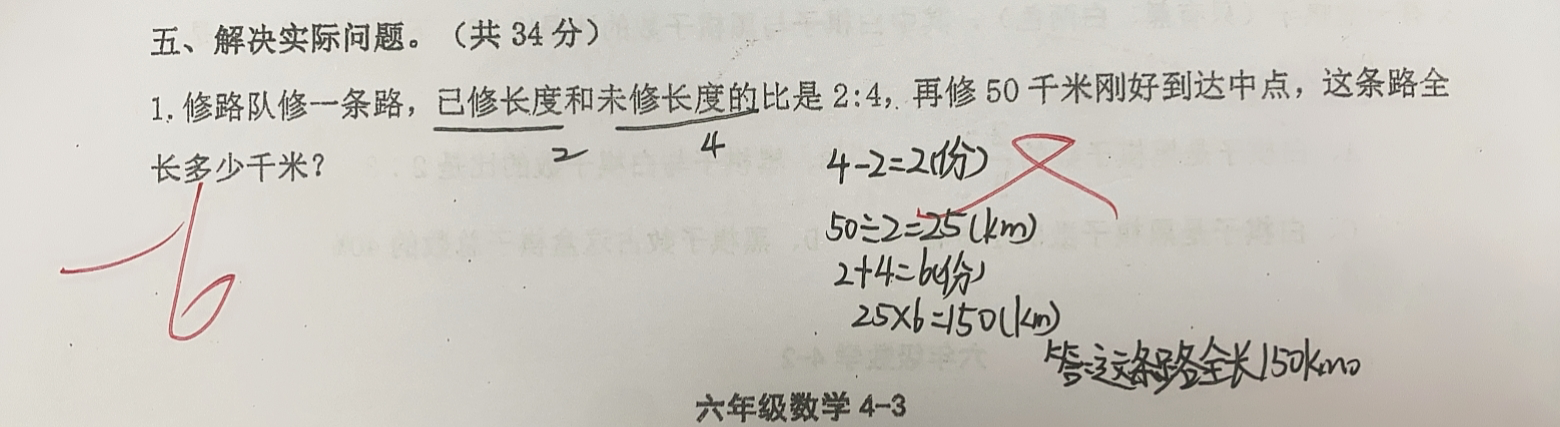 五、解决实际问题。（共 34 分）
1. 修路队修一条路，已修长度和未修长度的比是 2:4，再修 50 千米刚好到达中点，这条路全
长多少千米？
2
4
4-2=2(份)
50÷2=25(km)
2+4=6(份)
25×6=150(km)
答:这条路全长150km。
-6
六年级数学 4-3